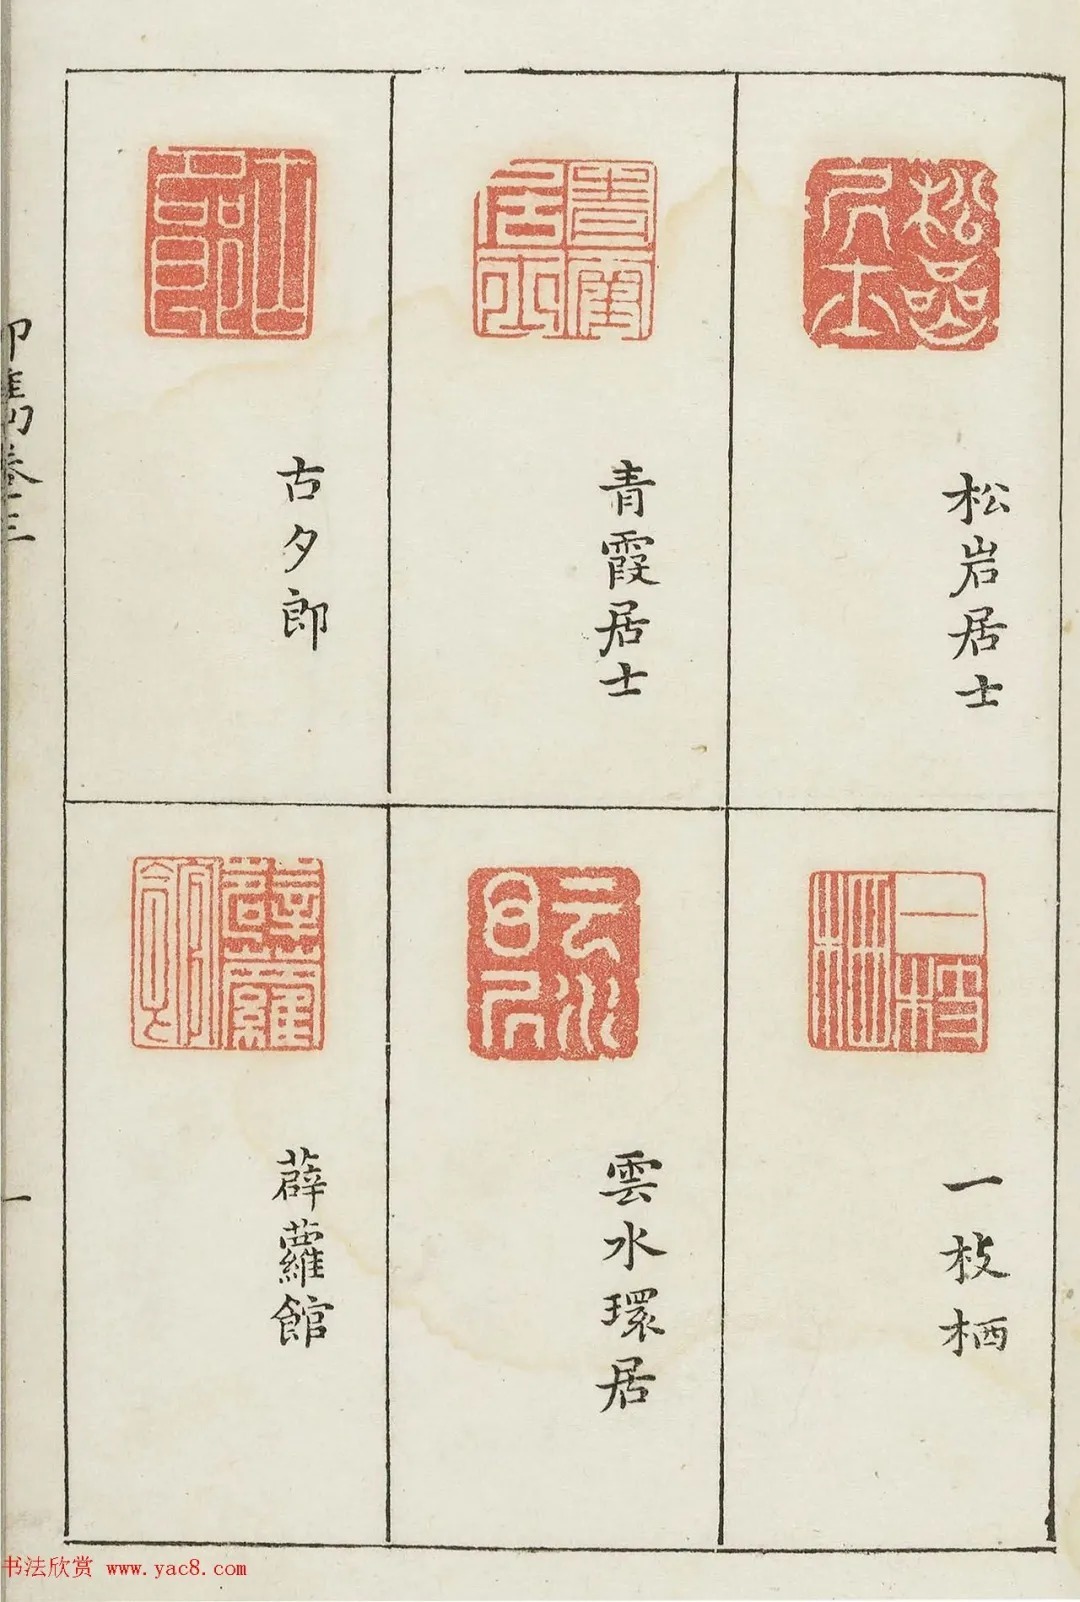 松岩居士
青霞居士
古夕郎
一枝栖
雲水環居
薜蘿館
印雋卷三
一
书法欣赏 www.yac8.com